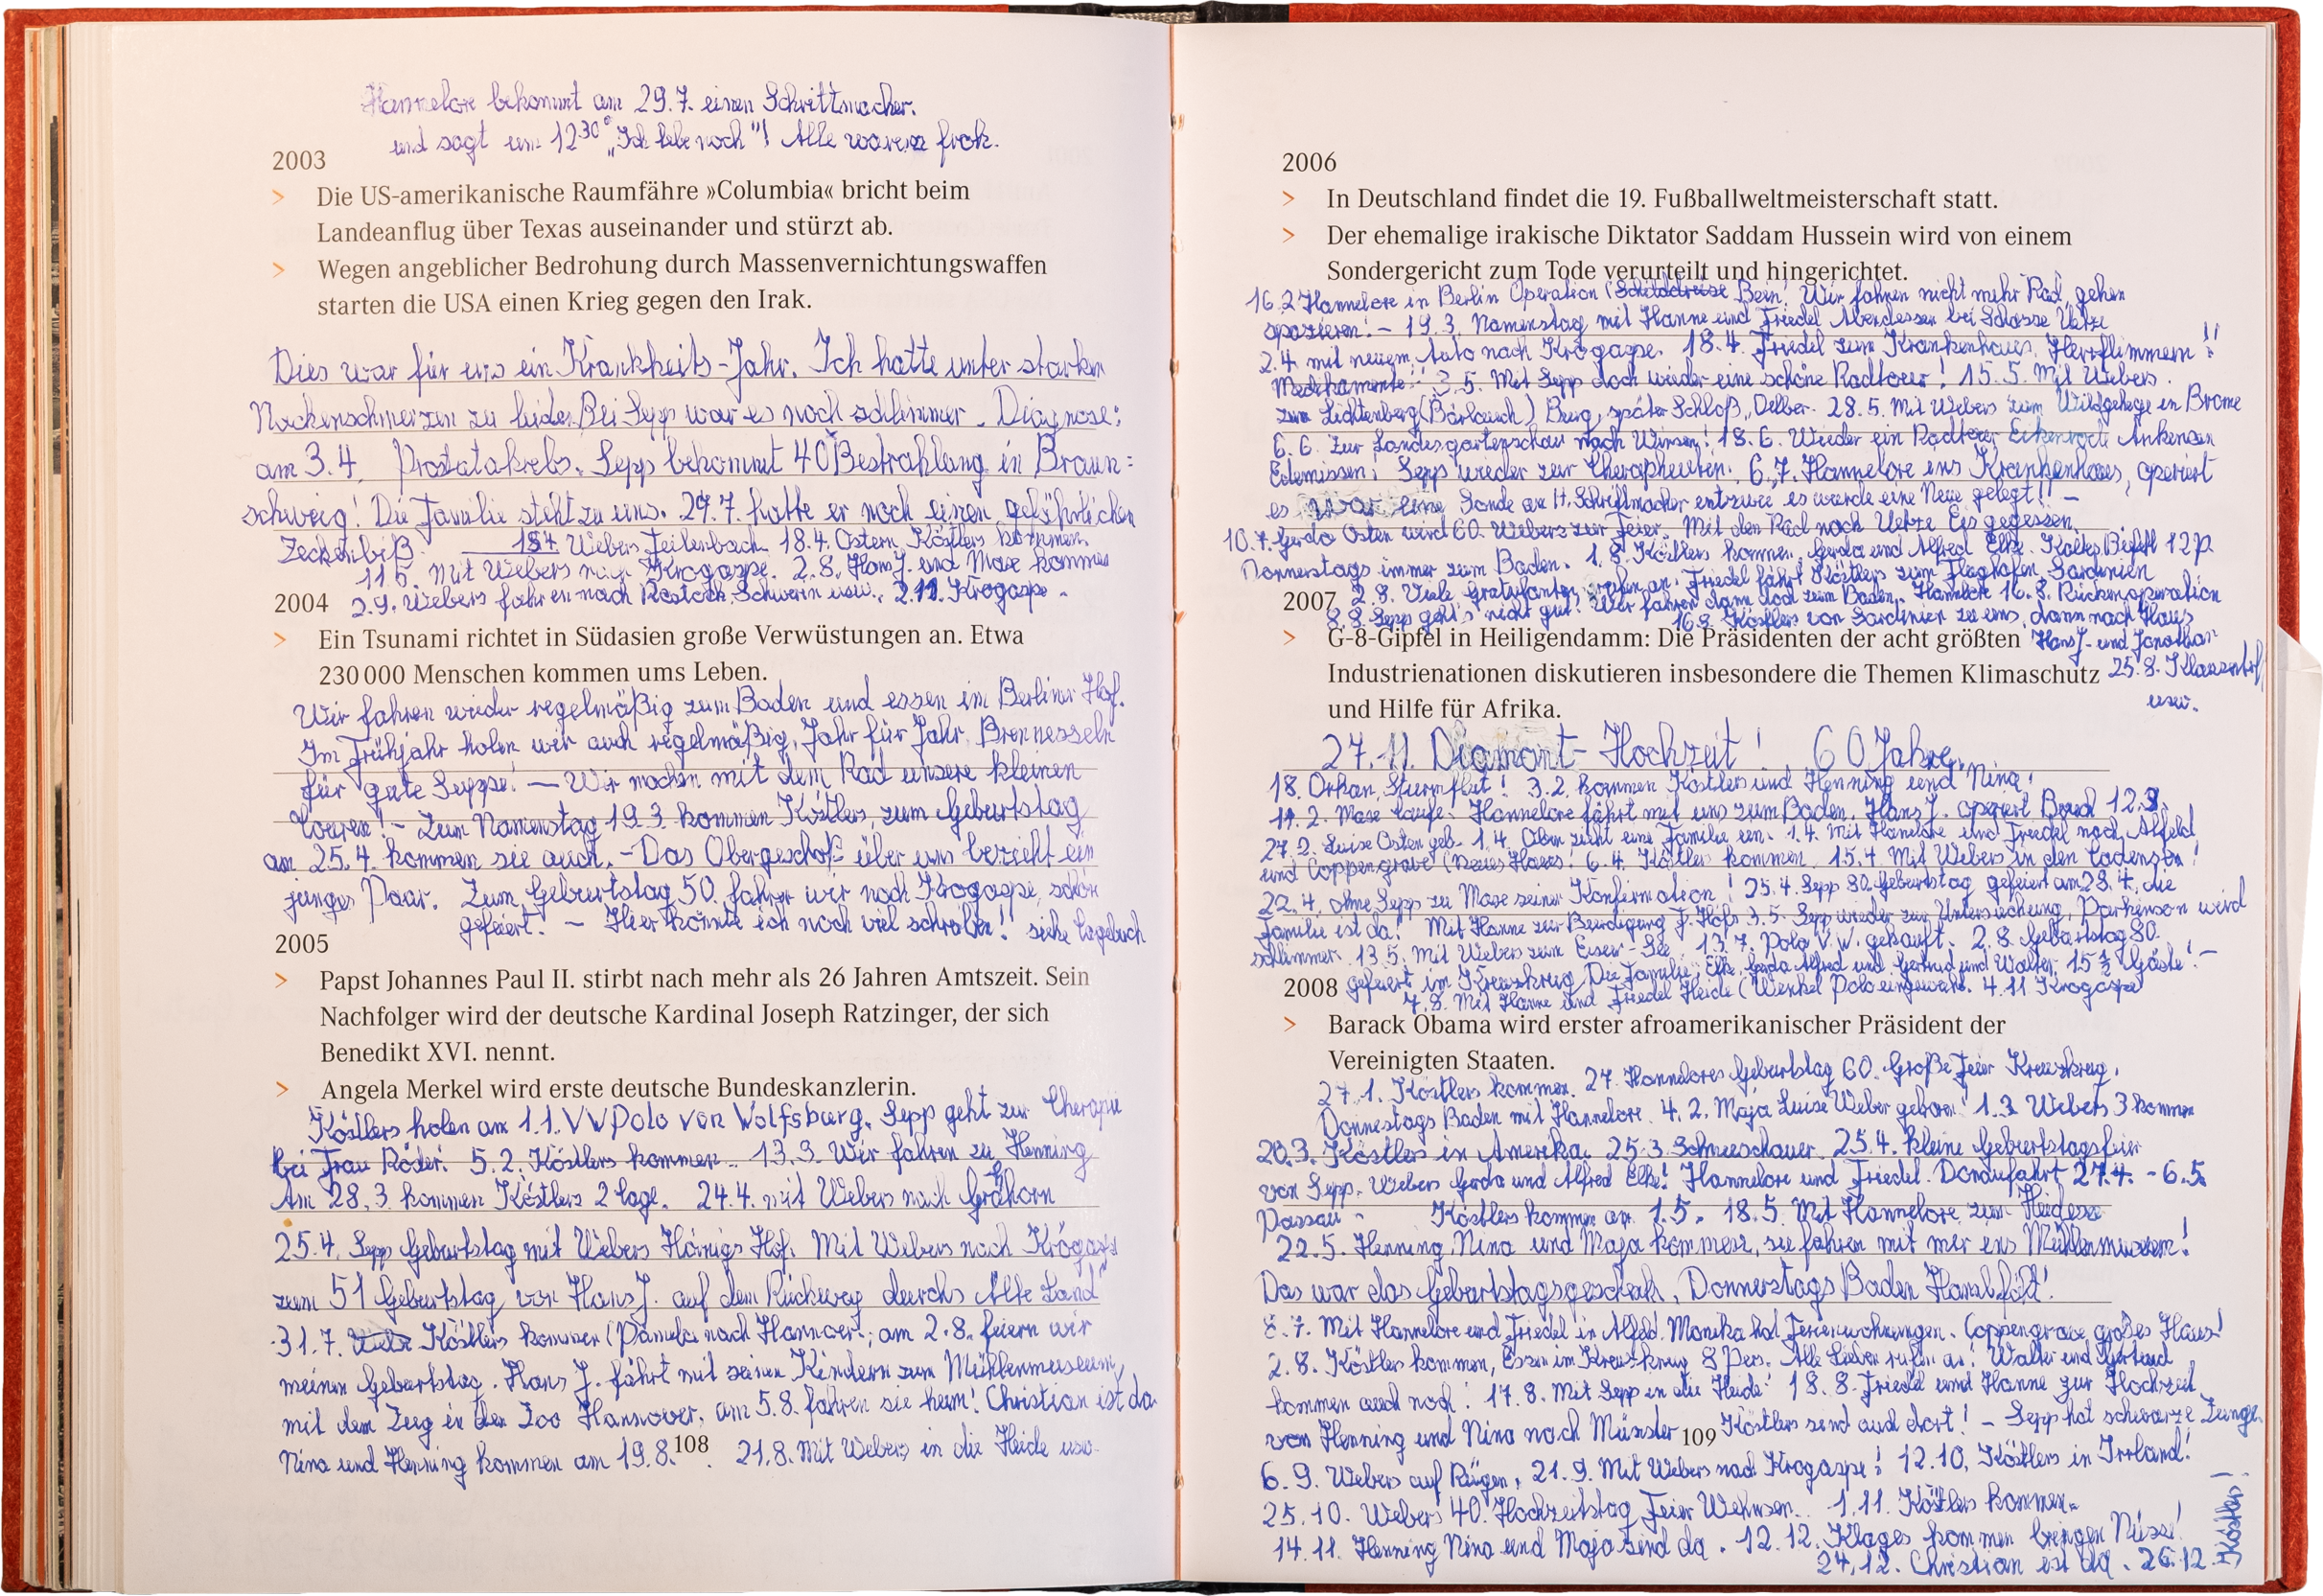 Hannelore bekommt am 29.7. einen Schrittmacher.
und sagt um 12 30° „Ich lebe noch"! Alle waren froh.
2003
> Die US-amerikanische Raumfähre »Columbia« bricht beim
Landeanflug über Texas auseinander und stürzt ab.
> Wegen angeblicher Bedrohung durch Massenvernichtungswaffen
starten die USA einen Krieg gegen den Irak.
Dies war für uns ein Krankheits-Jahr. Ich hatte unter starken
Nackenschmerzen zu leiden. Bei Sepp war es noch schlimmer. Diagnose:
am 3.4. Prostatakrebs. Sepp bekommt 40 Bestrahlung in Braun=
schweig! Die Familie steht zu uns. 29.7. hatte er noch einen gefährlichen
Zeckenbiß. Webers Feilenbach. 18.4. Ostern Köstlers kommen.
11.5. Mit Webers nach Krogaspe. 2.8. Hans J. und Maxe kommen
2004 2.9. Webers fahren nach Rostock, Schwerin usw., 2.11. Krogaspe.
> Ein Tsunami richtet in Südasien große Verwüstungen an. Etwa
230 000 Menschen kommen ums Leben.
Wir fahren wieder regelmäßig zum Baden und essen im Berliner Hof.
Im Frühjahr holen wir auch regelmäßig, Jahr für Jahr, Brennesseln
für gute Suppe! — Wir machen mit dem Rad unsere kleinen
Touren! - Zum Namenstag 19.3. kommen Köstlers, zum Geburtstag
am 25.4. kommen sie auch. - Das Obergeschoß über uns bezieht ein
junges Paar. Zum Geburtstag 50. fahren wir nach Krogaspe, schön
gefeiert. - Hier könnte ich noch viel schreiben! siehe Tagebuch
2005
> Papst Johannes Paul II. stirbt nach mehr als 26 Jahren Amtszeit. Sein
Nachfolger wird der deutsche Kardinal Joseph Ratzinger, der sich
Benedikt XVI. nennt.
> Angela Merkel wird erste deutsche Bundeskanzlerin.
Köstlers holen am 1.1. VW Polo von Wolfsburg. Sepp geht zur Therapie
bei Frau Röder! 5.2. Köstlers kommen. 13.3. Wir fahren zu Henning
Am 28.3. kommen Köstlers 2 Tage. 24.4. mit Webers nach
25.4. Sepp Geburtstag mit Webers Hof. Mit Webers nach Krogaspe
zum 51 Geburtstag von Hans J. auf dem Rückweg durchs Alte Land
31.7. Köstlers kommen (Pamela nach Hannover; am 2.8. feiern wir
meinen Geburtstag. Hans J. fährt mit seinen Kindern zum Mühlenmuseum,
mit dem Zug in den Zoo Hannover, am 5.8. fahren sie heim! Christian ist da
Nina und Henning kommen am 19.8. 21.8. Mit Webers in die Heide usw.
108
2006
> In Deutschland findet die 19. Fußballweltmeisterschaft statt.
> Der ehemalige irakische Diktator Saddam Hussein wird von einem
Sondergericht zum Tode verurteilt und hingerichtet.
16.2 Hannelore in Berlin Operation ( Bein! Wir fahren nicht mehr Rad, gehen
spazieren! - 19.3. Namenstag mit Hanne und Friedel Abendessen bei Uetze
2.4. mit neuem Auto nach Krogaspe. 18.4. Friedel zum Krankenhaus, Herzflimmern!!
Medikamente! 3.5. Mit Sepp doch wieder eine schöne Radtour! 15.5. Mit Webers
zum Lichtenberg (Bärlauch) Burg, später Schloß, Oelber. 28.5. Mit Webers zum Wildgehege in Brome
6.6. Zur Landesgartenschau nach Winsen! 18.6. Wieder ein Radtour Eikenrode Ankensen
Edemissen. Sepp wieder zur Therapheutin. 6.7. Hannelore ins Krankenhaus, operiert
es war eine Sonde am H. Schrittmacher entzwei es wurde eine Neue gelegt! -
10.7. Gerda Osten wird 60. Webers zur Feier. Mit den Rad nach Uetze Eis gegessen.
Donnerstags immer zum Baden. 1.8. Köstlers kommen. Gerda und Alfred Elke. Kaltes Büfett 12 P.
2.8. Viele Gratulanten rufen an. Friedel fährt Köstlers zum Flughafen Sardinien
2007 8.8. Sepp geht's nicht gut! Wir fahren dann doch zum Baden. Hannelore 16.8. Rückenoperation
16.8. Köstlers von Sardinien zu uns, dann nach Haus
> G-8-Gipfel in Heiligendamm: Die Präsidenten der acht größten Hans J. und Jonathan
Industrienationen diskutieren insbesondere die Themen Klimaschutz 25.8.
und Hilfe für Afrika. usw.
27.11. Diamant-Hochzeit! 60 Jahre.
18. Orkan, Sturmflut! 3.2. kommen Köstlers und Henning und Nina!
11.2. Maxe Taufe. Hannelore fährt mit uns zum Baden. Hans J. operiert Bruch 12.3.
27.2. Luise Osten geb. 1.4. Oben zieht eine Familie ein. 1.4. Mit Hannelore und Friedel nach Alfeld
und Coppengrave (neues Haus! 6.4. Köstlers kommen. 15.4. Mit Webers in den
22.4. ohne Sepp zu Maxe seiner Konfirmation! 25.4. Sepp 80. Geburtstag gefeiert am 28.4. die
Familie ist da! Mit Hanne zur Beerdigung 3.5. Sepp wieder zur Untersuchung, Parkinson wird
schlimmer. 13.5. Mit Webers zum Eixer-See, 13.7. Polo V.W. gekauft. 2.8. Geburtstag 80.
gefeiert im Kreuzkrug. Die Familie, Elke, Gerda Alfred und Gertrud und Walter, 15 Gäste! -
2008 7.8. Mit Hanne und Friedel Heide ( Polo eingeweiht. 4.11 Krogaspe
> Barack Obama wird erster afroamerikanischer Präsident der
Vereinigten Staaten.
27.1. Köstlers kommen. 27. Hannelores Geburtstag 60. Große Feier Kreuzkrug.
Donnerstags Baden mit Hannelore. 4.2. Maja Luise Weber geboren! 1.3. Webers 3 kommen
20.3. Köstlers in Amerika. 25.3. Schneeschauer. 25.4. kleine Geburtstagsfeier
von Sepp. Webers Gerda und Alfred Elke! Hannelore und Friedel. Donaufahrt 27.4. - 6.5.
Passau. Köstlers kommen am 1.5. 18.5. Mit Hannelore zum
22.5. Henning, Nina und Maja kommen, sie fahren mit mir ins Mühlenmuseum!
Das war das Geburtstagsgeschenk, Donnerstags Baden
8.7. Mit Hannelore und Friedel in Alfeld. Monika hat Ferienwohnungen. Coppengrave großes Haus!
2.8. Köstlers kommen, Essen im Kreuzkrug 8 Pers. Alle Lieben rufen an! Walter und Gertrud
kommen auch noch! 17.8. Mit Sepp in die Heide! 18.8. Friedel und Hanne zur Hochzeit
von Henning und Nina nach Münster Köstlers sind auch dort! - Sepp hat schwarze Zunge.
109
6.9. Webers auf Rügen. 21.9. Mit Webers nach Krogaspe! 12.10. Köstlers in Irrland!
25.10. Webers 40. Hochzeitstag Feier Wehnsen. 1.11. Köstlers kommen.
14.11. Henning Nina und Maja sind da. 12.12. Klages kommen bringen Nüsse!
24.12. Christian ist da. 26.12. Köstlers!